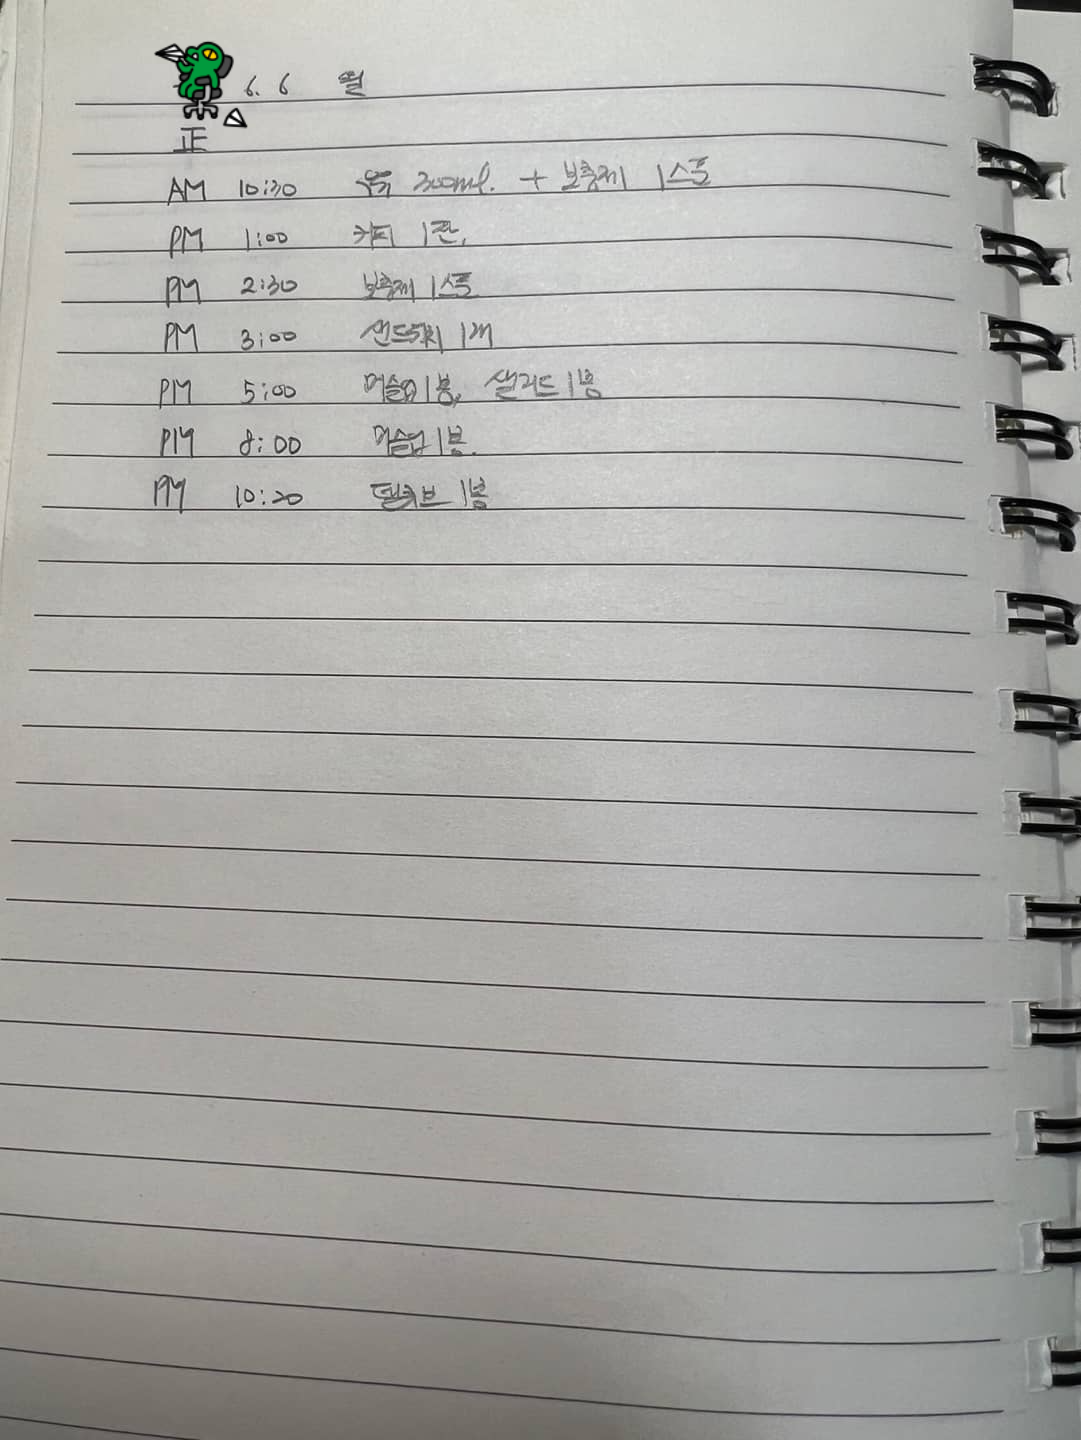 6. 6 월
正
AM 10:30 300ml. + 보충제 1스푼
PM 1:00 커피 1잔.
PM 2:30 보충제 1스푼
PM 3:00 샌드위치 1개
PM 5:00 머슬업 1봉, 샐러드 1봉
PM 8:00 머슬업 1봉.
PM 10:20 1봉